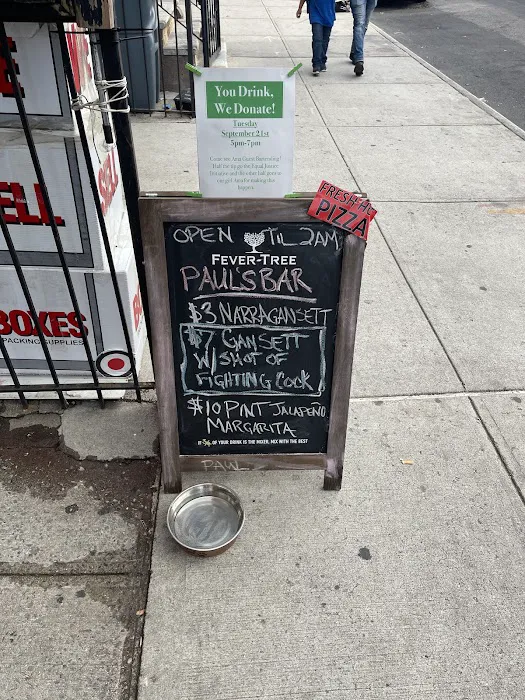 You Drink,
We Donate!
Tuesday
September 21st
5pm-7pm
FRESH HOT
PIZZA
OPEN TIL 2AM
FEVER-TREE
PAUL'S BAR
$3 NARRAGANSETT
$7 GANSETT
W/ SHOT OF
FIGHTING COCK
$10 PINT JALAPEÑO
MARGARITA
IF 3/4 OF YOUR DRINK IS THE MIXER, MIX WITH THE BEST
PAUL
ELL
BOXES
PACKING SUPPLIES